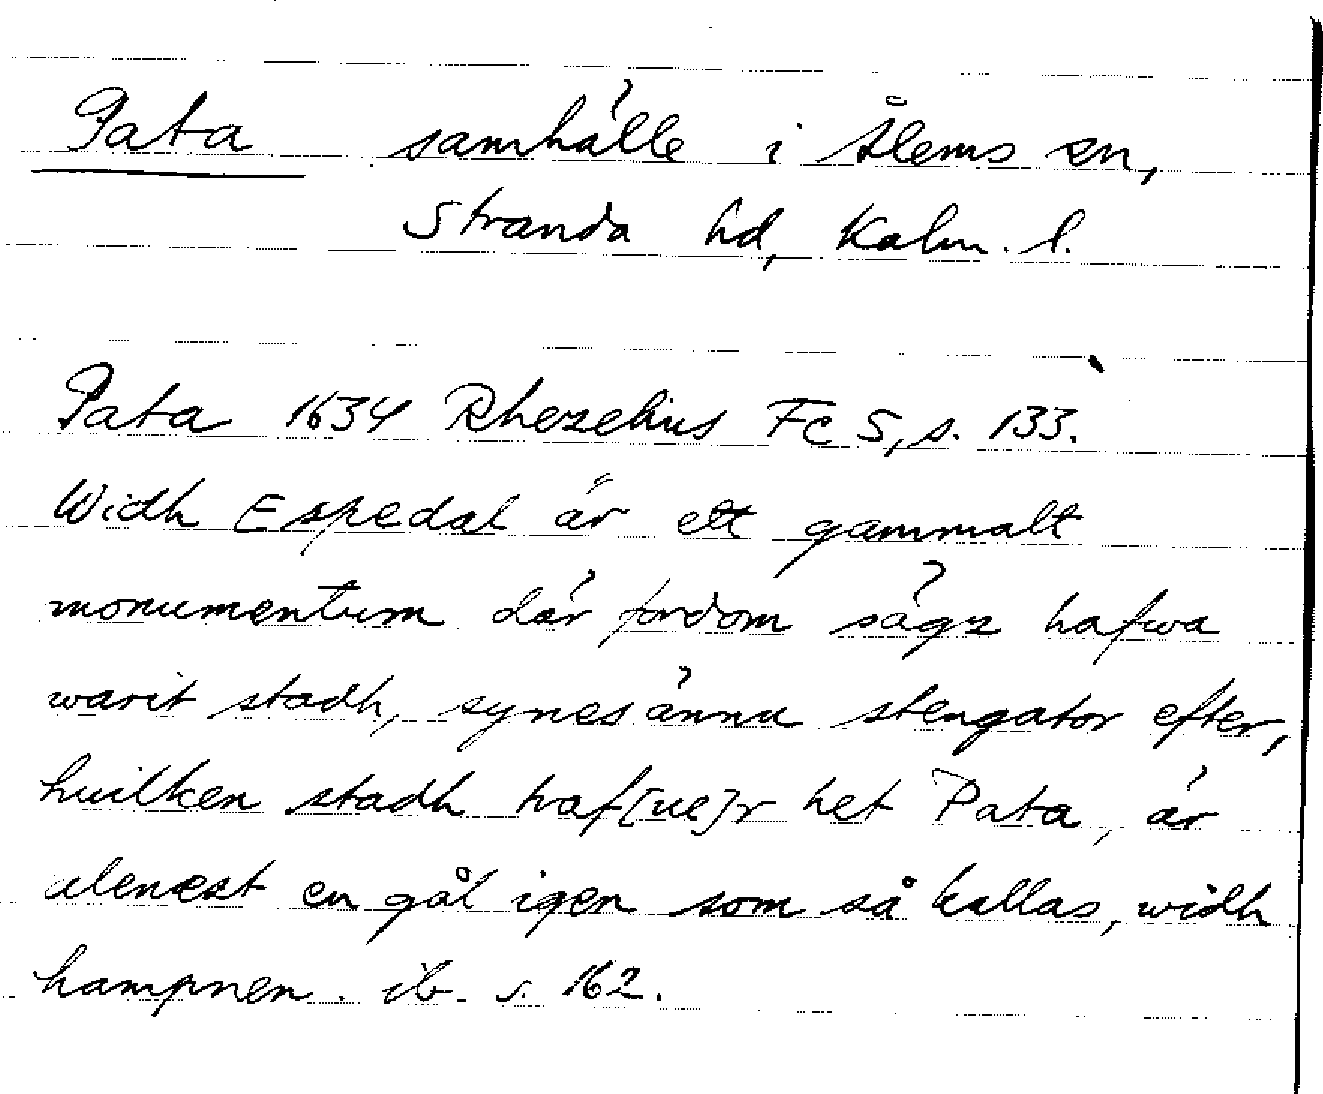 Pata samhälle i Ålems sn,
Stranda hd, Kalm. l.
Pata 1634 Rhezelius Fc 5, s. 133.
Widh Espedal är ett gammalt
monumentum där fordom sägz hafwa
warit stadh, synes ännu stengator efter,
huilken stadh haf[ue]r het Pata, är
alenest en gål igen som så kallas, widh
hampnen. ib. s. 162.